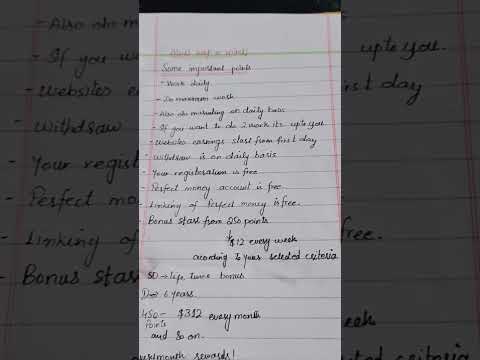 Some important points
- Work daily
- Do maximum work
- Also do marketing on daily basis
- If you want to do 2 work its upto you
- Websites earnings start from first day
- Withdraw is on daily basis
- Your registeration is free
- Perfect money account is free
- Linking of Perfect money is free.
- Bonus start from 250 points
$12 every week
acording to your selected criteria
SD → life time bonus
D → 6 years.
450 points - $312 every month
and so on.
month rewards!
- Also do ma
- If you w
upto you.
- Websites
first day
- Withdraw
- Your regist
- Perfect mo
- Linking
free.
- Bonus star